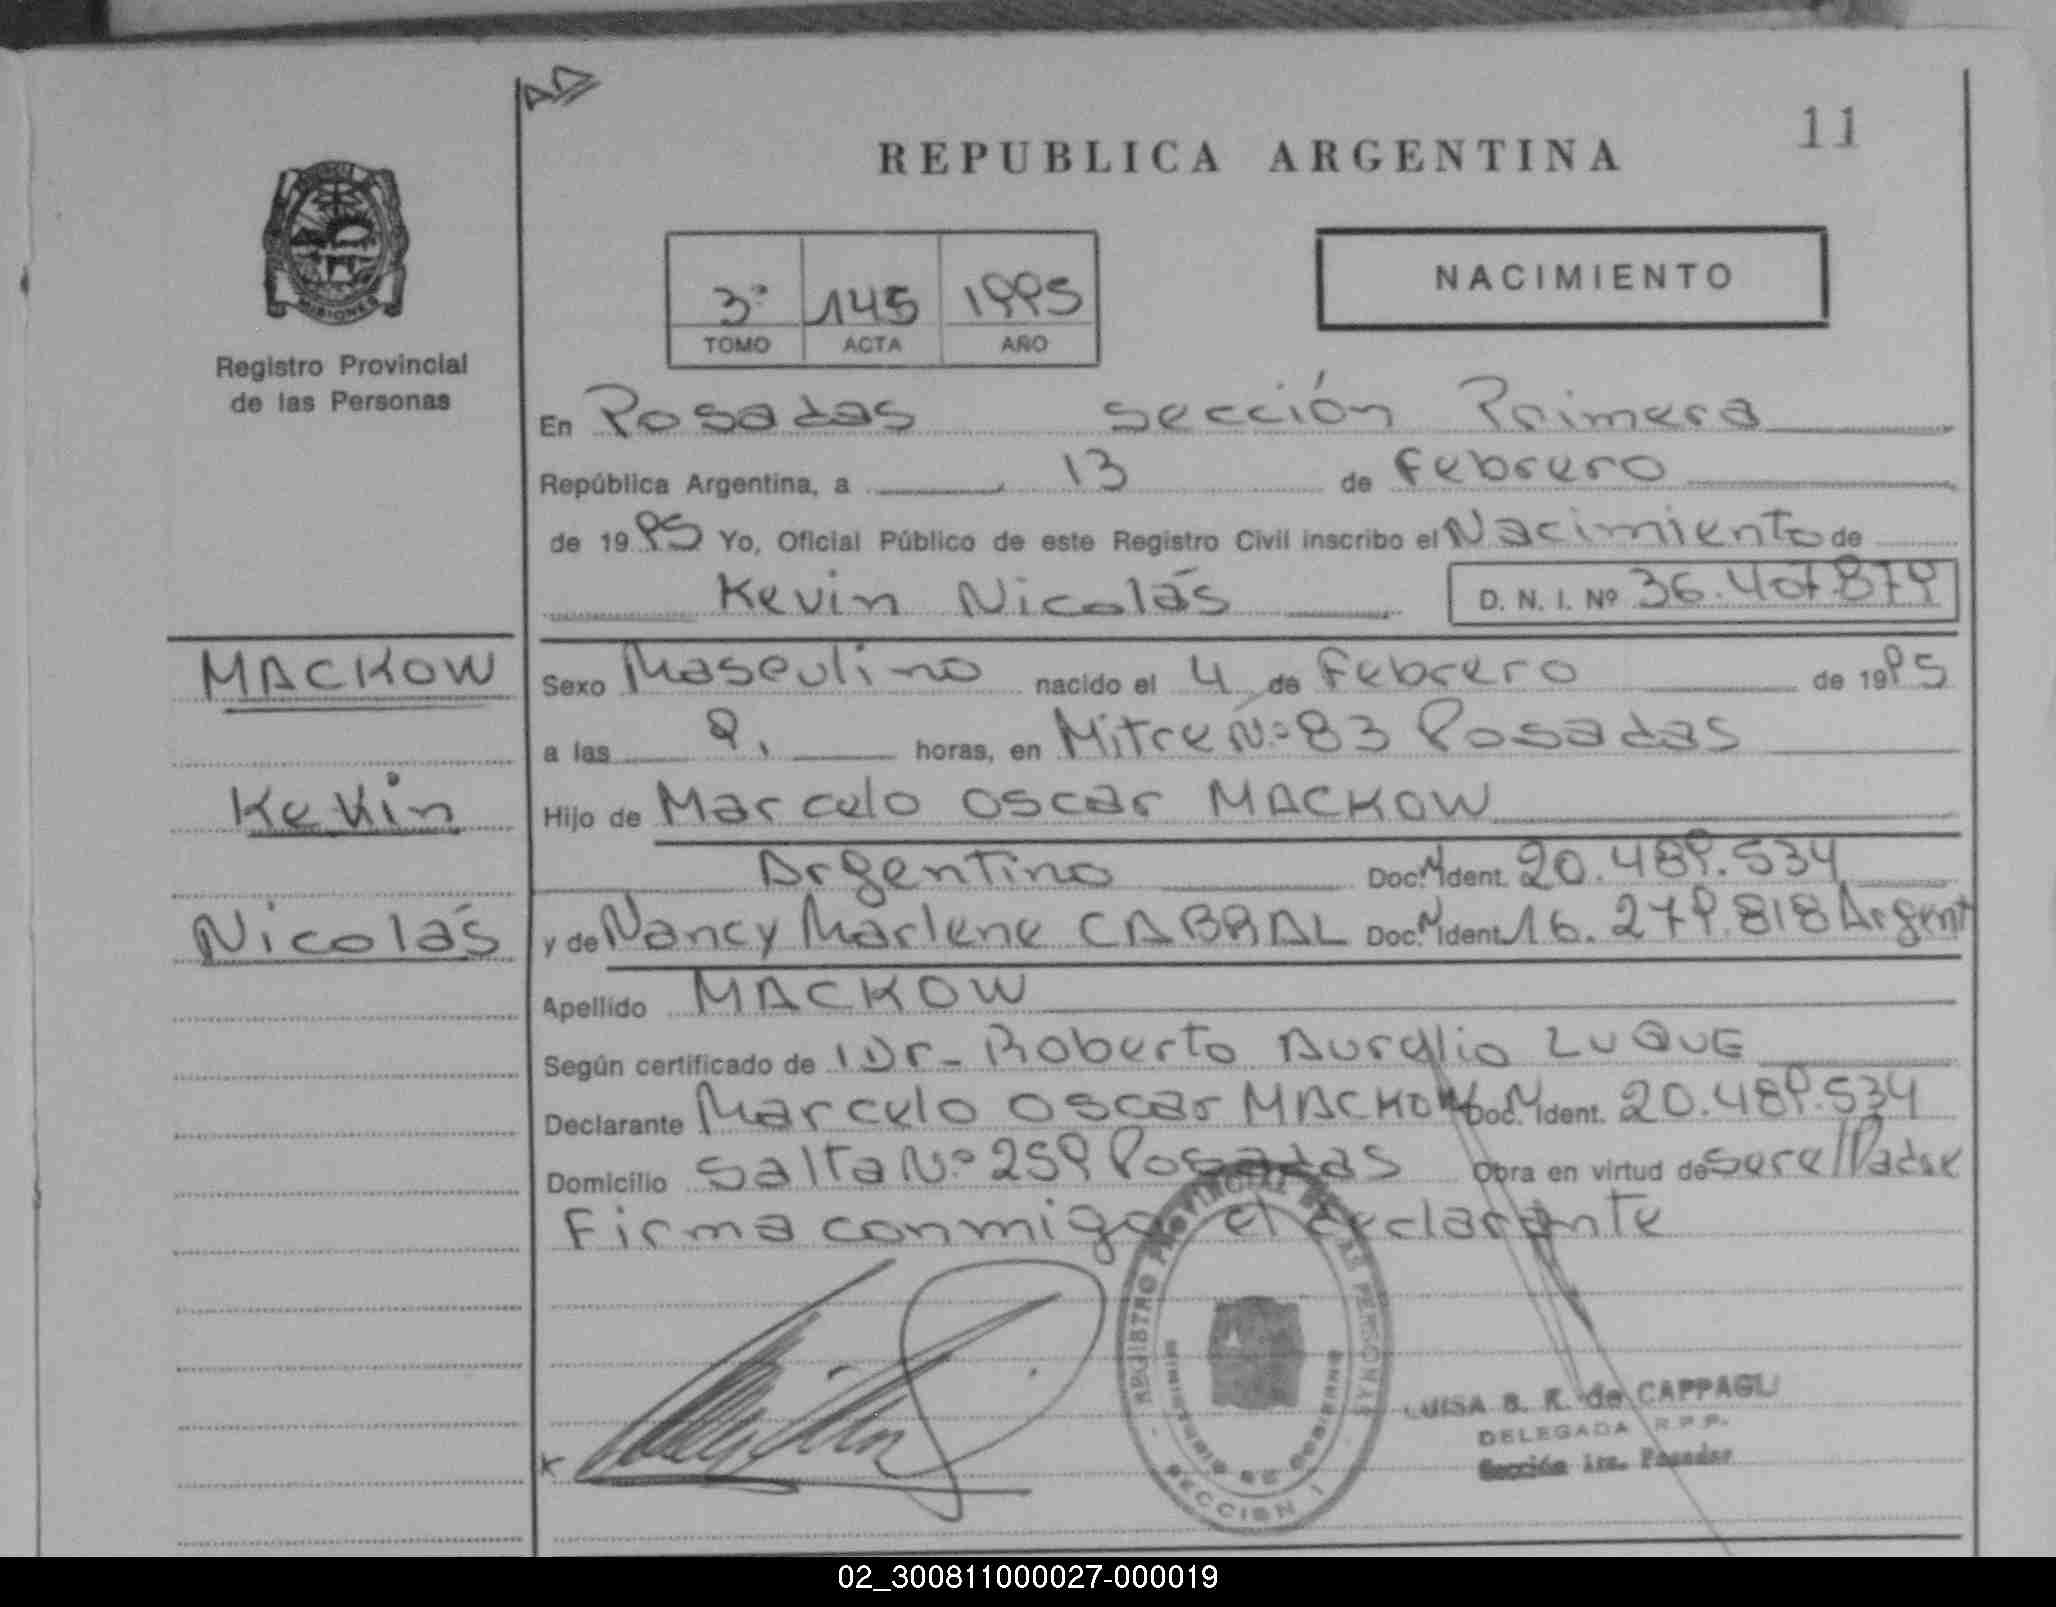 AD
11
REPUBLICA ARGENTINA
MISIONES
Registro Provincial
de las Personas
3º 145 1995
TOMO ACTA AÑO
NACIMIENTO
En Posadas sección Primera
República Argentina, a 13 de Febrero
de 1995 Yo, Oficial Público de este Registro Civil inscribo el Nacimiento de
Kevin Nicolás D. N. I. Nº 36.407.879
MACKOW
Sexo Masculino nacido el 4 de Febrero de 1995
a las 9, horas, en Mitre Nº 83 Posadas
Kevin
Hijo de Marcelo Oscar MACKOW
Argentino Doc. Nº Ident. 20.489.534
Nicolás
y de Nancy Marlene CABRAL Doc. Nº Ident. 16.279.818 Argent
Apellido MACKOW
Según certificado de Dr. Roberto Aurelio LUQUE
Declarante Marcelo Oscar MACKOW Doc. Nº Ident. 20.489.534
Domicilio Salta Nº 259 Posadas Obra en virtud de ser el Padre
Firma conmigo el declarante
REGISTRO PROVINCIAL DE LAS PERSONAS
MINISTERIO DE GOBIERNO
SECCION 1
LUISA B. R. de CAPPAGLI
DELEGADA R.P.P.
Sección 1ra. Posadas
02_300811000027-000019